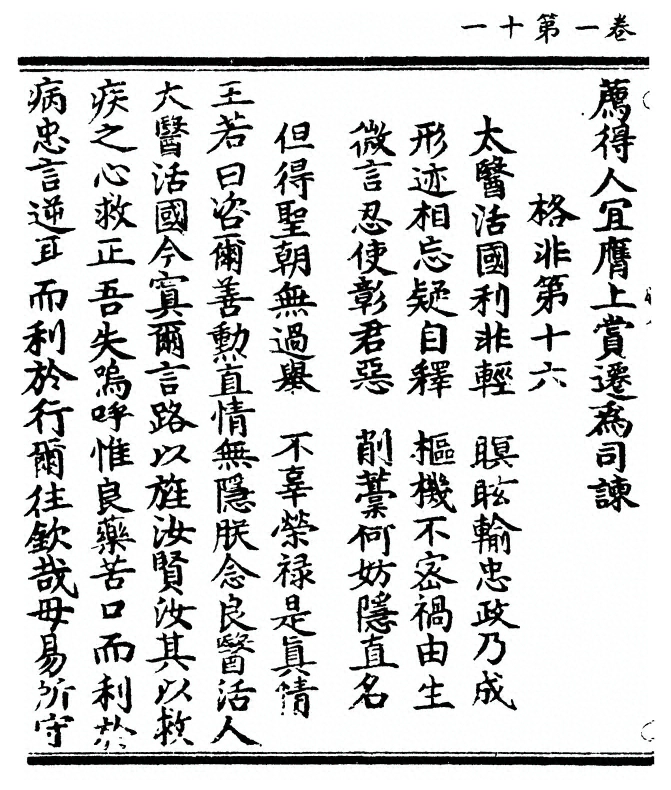 卷一第十一
薦得人宜膺上賞遷爲司諫
格非第十六
太醫活國利非輕 瞑眩輸忠政乃成
形迹相忘疑自釋 樞機不密禍由生
微言忍使彰君惡 削藁何妨隱直名
但得聖朝無過舉 不辜榮禄是眞情
王若曰咨爾善勲直情無隱朕念良醫活人
大醫活國今寘爾言路以旌汝賢汝其以救
疾之心救正吾失嗚呼惟良藥苦口而利於
病忠言逆耳而利於行爾往欽哉毋易所守